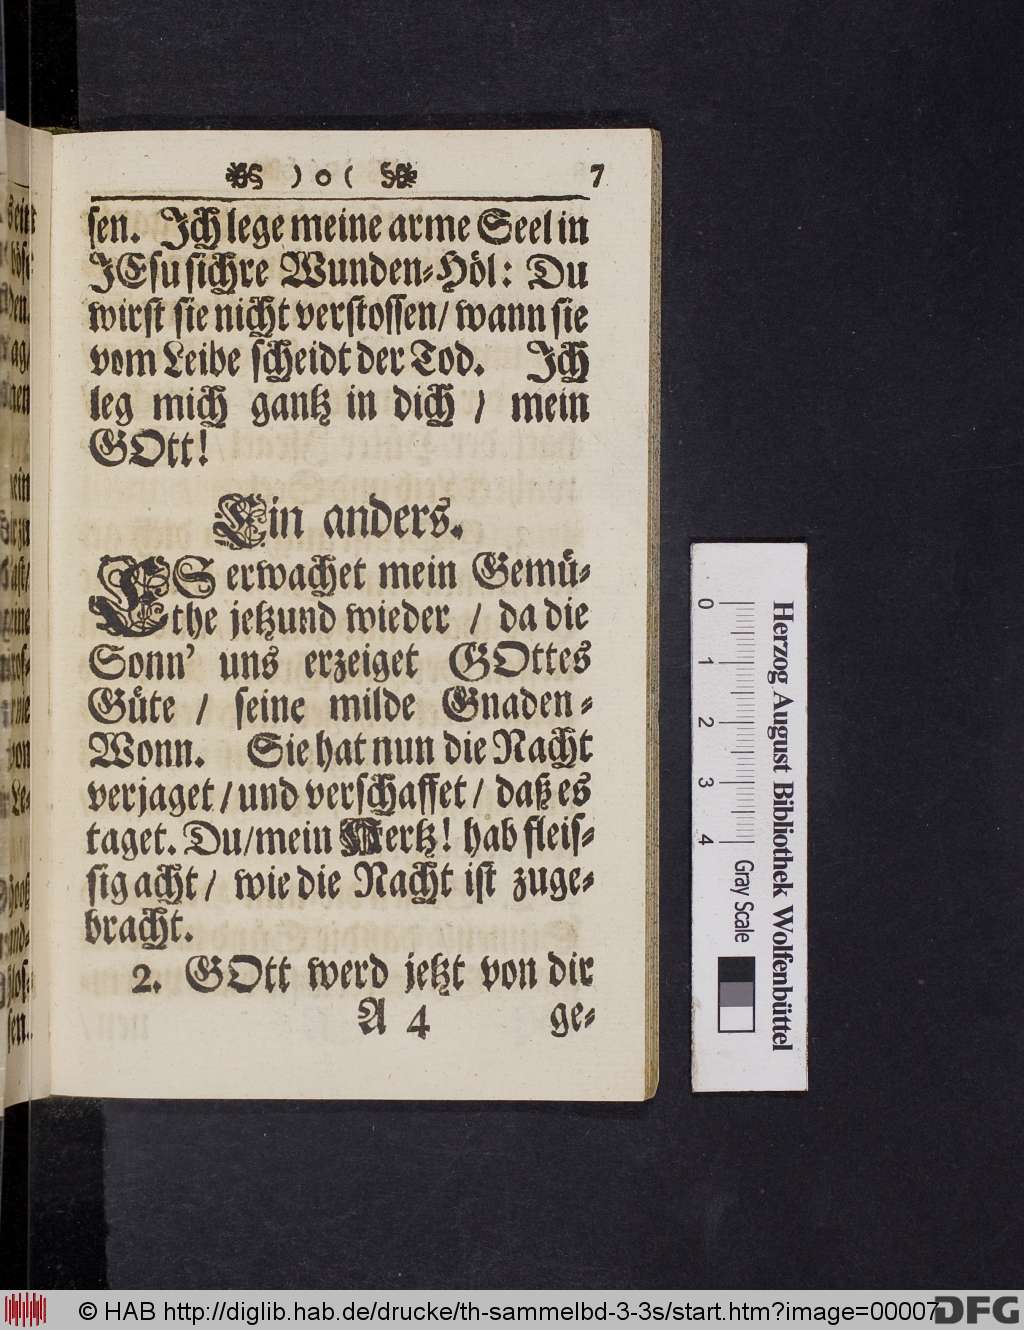 ) o ( 7
sen. Jch lege meine arme Seel in
JEsu sichre Wunden-Höl: Du
wirst sie nicht verstossen/ wann sie
vom Leibe scheidt der Tod. Jch
leg mich gantz in dich / mein
GOtt!
Ein anders.
ES erwachet mein Gemü-
the jetzund wieder / da die
Sonn' uns erzeiget GOttes
Güte / seine milde Gnaden-
Wonn. Sie hat nun die Nacht
verjaget / und verschaffet / daß es
taget. Du/mein Hertz! hab fleis-
sig acht / wie die Nacht ist zuge-
bracht.
2. GOtt werd jetzt von dir
A 4 ge-
Herzog August Bibliothek Wolfenbüttel
0 1 2 3 4 Gray Scale
© HAB http://diglib.hab.de/drucke/th-sammelbd-3-3s/start.htm?image=00007
DFG